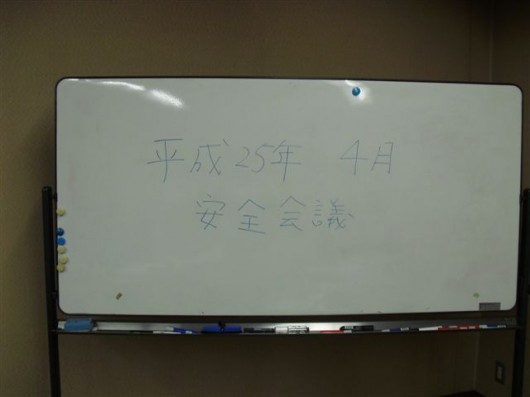 平成25年 4月
安全会議